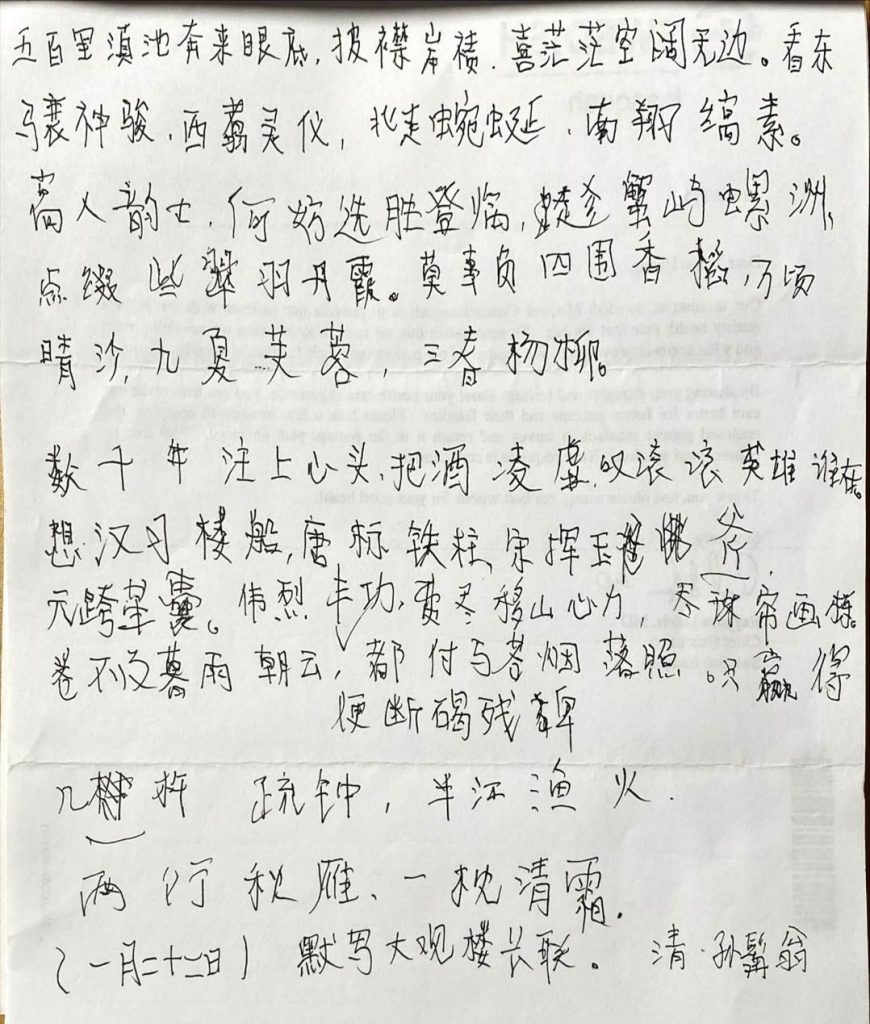 五百里滇池奔来眼底，披襟岸帻，喜茫茫空阔无边。看东
骧神骏，西翥灵仪，北走蜿蜒，南翔缟素。
高人韵士，何妨选胜登临，趁蟹屿螺洲，
点缀些翠羽丹霞。莫事负四围香稻，万顷
晴沙，九夏芙蓉，三春杨柳。
数千年注上心头，把酒凌虚，叹滚滚英雄谁在。
想汉习楼船，唐标铁柱，宋挥玉斧，
元跨革囊。伟烈丰功，费尽移山心力，尽珠帘画栋。
卷不及暮雨朝云，都付与苍烟落照。只赢得
便断碣残碑
几杵疏钟，半江渔火.
两行秋雁、一枕清霜.
(一月二十二日) 默写大观楼长联。清·孙髯翁